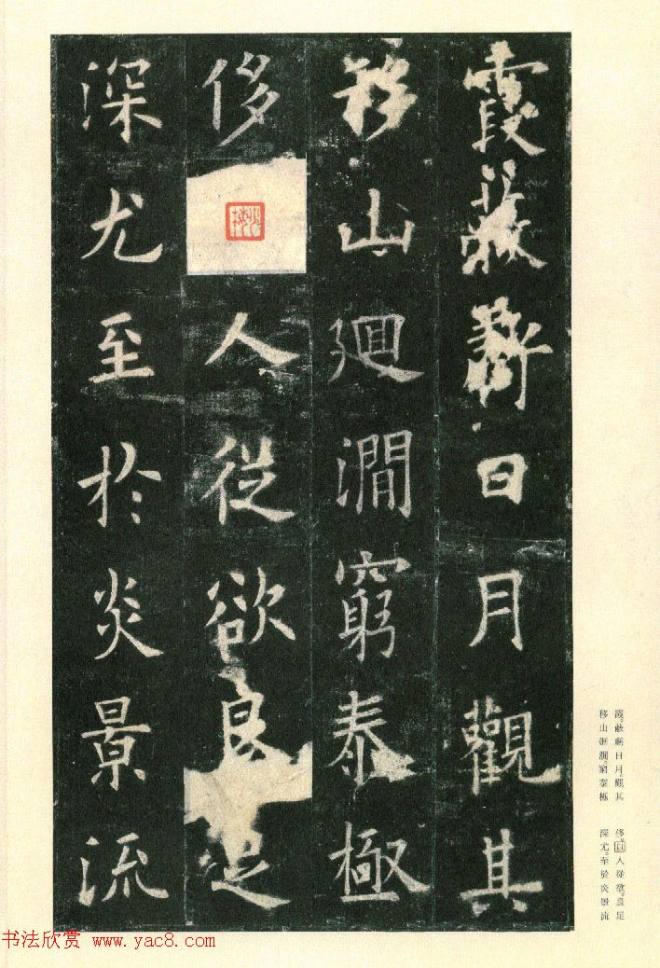 霞蔽虧日月觀其
移山廻澗窮泰極
侈人從欲良足
深尤至於炎景流
霞。蔽虧日月。觀其
移山廻澗。窮泰極
侈。以人從欲。良足
深尤。至於炎景流
书法欣赏 www.yac8.com